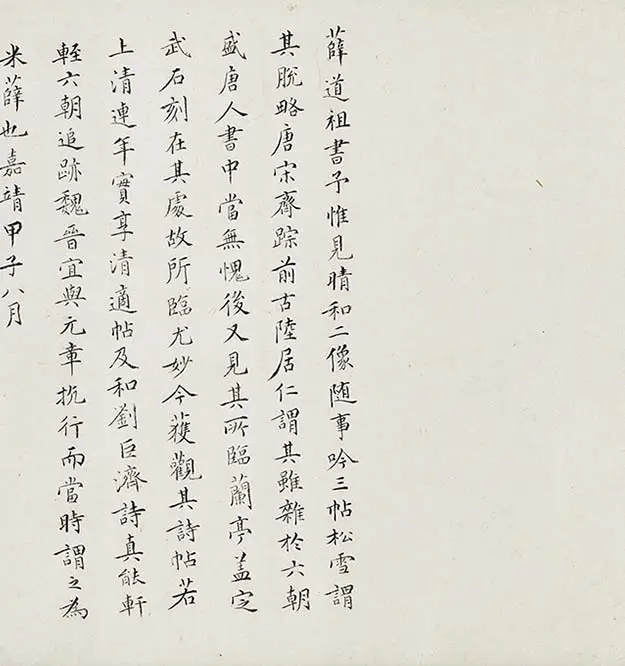 薛道祖書予惟見晴和二像随事吟三帖松雪謂
其脫略唐宋齊踪前古陸居仁謂其雖雜於六朝
盛唐人書中當無愧後又見其所臨蘭亭盖定
武石刻在其處故所臨尤妙今獲觀其詩帖若
上清連年實享清適帖及和劉巨濟詩真能軒
輊六朝追跡魏晉宜與元章抗行而當時謂之為
米薛也嘉靖甲子八月